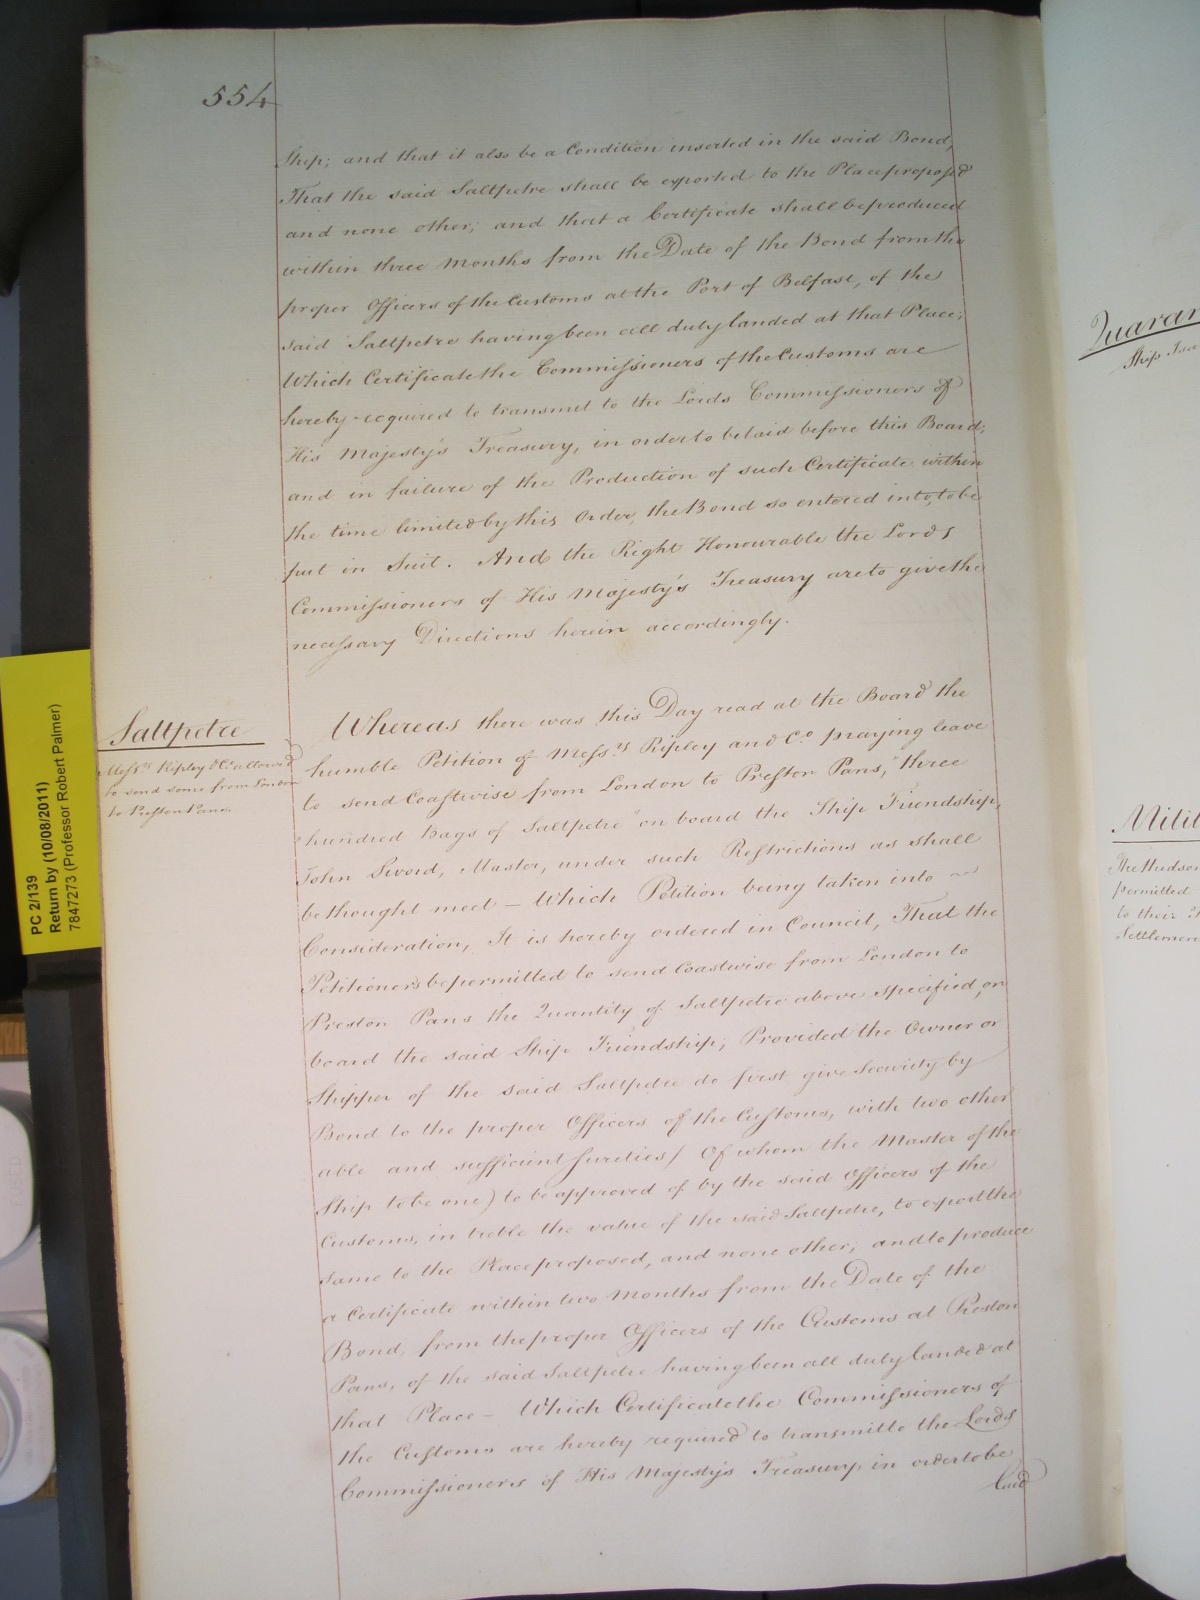 554
Ship; and that it also be a Condition inserted in the said Bond,
That the said Saltpetre shall be exported to the Place proposed
and none other; and that a Certificate shall be produced
within three Months from the Date of the Bond from the
proper Officers of the Customs at the Port of Belfast, of the
said Saltpetre having been all duly landed at that Place;
Which Certificate the Commissioners of the Customs are
hereby required to transmit to the Lords Commissioners of
His Majesty's Treasury, in order to be laid before this Board;
and in failure of the Production of such Certificate within
the time limited by this Order, the Bond so entered into, to be
put in Suit. And the Right Honourable the Lords
Commissioners of His Majesty's Treasury are to give the
necessary Directions herein accordingly.
Saltpetre
Mess.rs Ripley & Co. allowed
to send some from London
to Preston Pans.
Whereas there was this Day read at the Board the
humble Petition of Mess.rs Ripley and C.o praying leave
to send Coastwise from London to Preston Pans, "three
"hundred Bags of Saltpetre" on board the Ship Friendship,
John Sword, Master, under such Restrictions as shall
be thought meet – Which Petition being taken into
Consideration, It is hereby ordered in Council, That the
Petitioners be permitted to send Coastwise from London to
Preston Pans the Quantity of Saltpetre above specified, on
board the said Ship Friendship; Provided the Owner or
Shipper of the said Saltpetre do first give Security by
Bond to the proper Officers of the Customs, with two other
able and sufficient Sureties (Of whom the Master of the
Ship to be one) to be approved of by the said Officers of the
Customs, in treble the value of the said Saltpetre, to export the
same to the Place proposed, and none other; and to produce
a Certificate within two Months from the Date of the
Bond, from the proper Officers of the Customs at Preston
Pans, of the said Saltpetre having been all duly landed at
that Place – Which Certificate the Commissioners of
the Customs are hereby required to transmit to the Lords
Commissioners of His Majesty's Treasury, in order to be
laid
PC 2/139
Return by (10/08/2011)
7847273 (Professor Robert Palmer)
Quaran
Ship Isa
Milit
The Hudson
permitted
to their
Settlemen